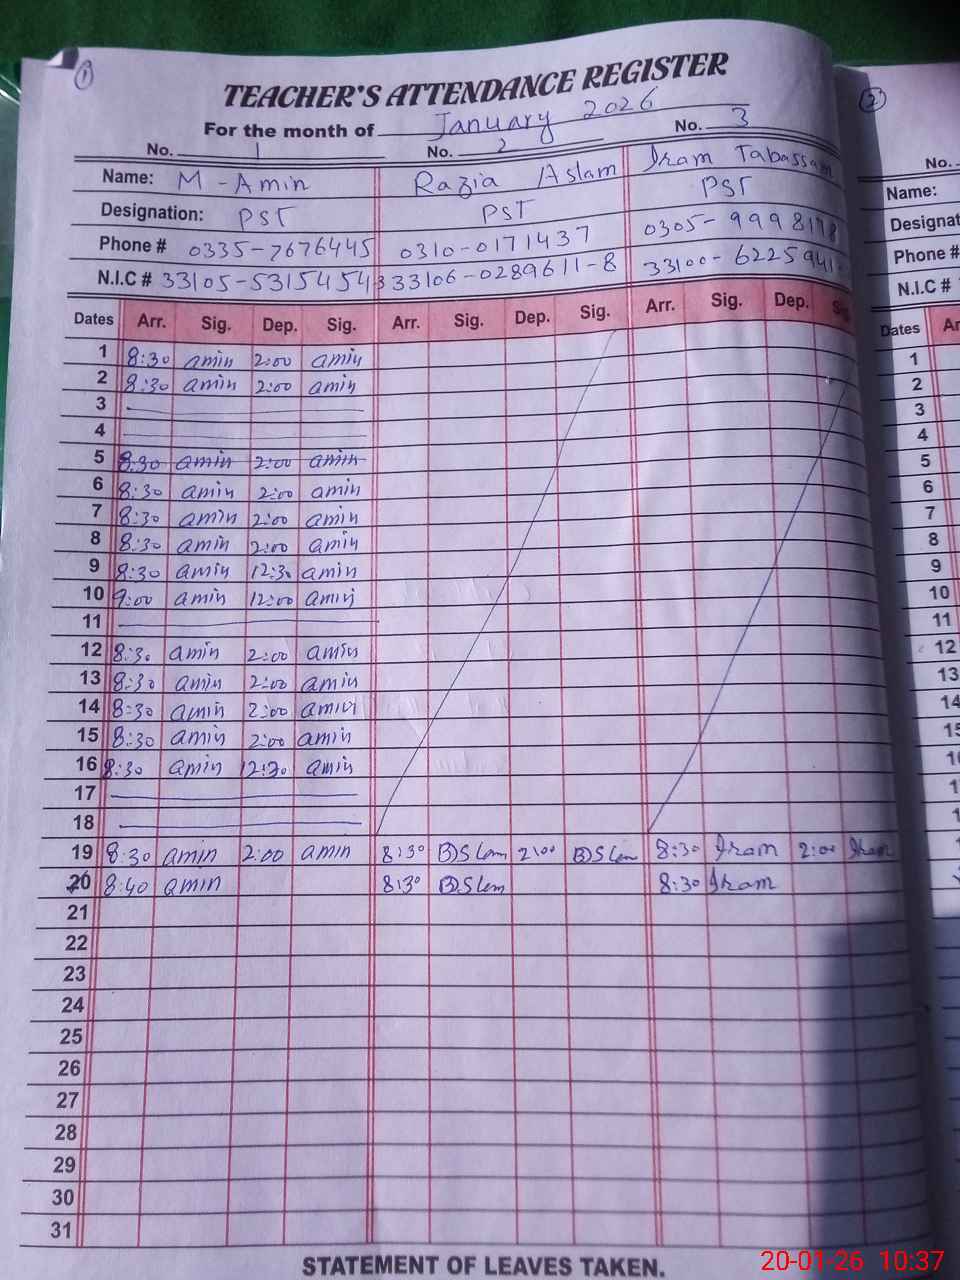 1
TEACHER'S ATTENDANCE REGISTER
For the month of January 2026
No. 1 No. 2 No. 3
Name: M-Amin Razia Aslam Iram Tabassam
Designation: PST PST PST
Phone # 0335-7676445 0310-0171437 0305-9998178
N.I.C # 33105-5315454 33106-0289611-8 33100-6225941-
Dates Arr. Sig. Dep. Sig. Arr. Sig. Dep. Sig. Arr. Sig. Dep. Sig
1 8:30 amin 2:00 amin
2 8:30 amin 2:00 amin
3
4
5 8:30 amin 2:00 amin
6 8:30 amin 2:00 amin
7 8:30 amin 2:00 amin
8 8:30 amin 2:00 amin
9 8:30 amin 12:30 amin
10 9:00 amin 12:00 amin
11
12 8:30 amin 2:00 amin
13 8:30 amin 2:00 amin
14 8:30 amin 2:00 amin
15 8:30 amin 2:00 amin
16 8:30 amin 12:30 amin
17
18
19 8:30 amin 2:00 amin 8:30 2:00 8:30 Iram 2:00 Iram
20 8:40 amin 8:30 8:30 Iram
21
22
23
24
25
26
27
28
29
30
31
STATEMENT OF LEAVES TAKEN.
2
No.
Name:
Designat
Phone #
N.I.C #
Dates Ar
1
2
3
4
5
6
7
8
9
10
11
12
13
14
20-01-26 10:37